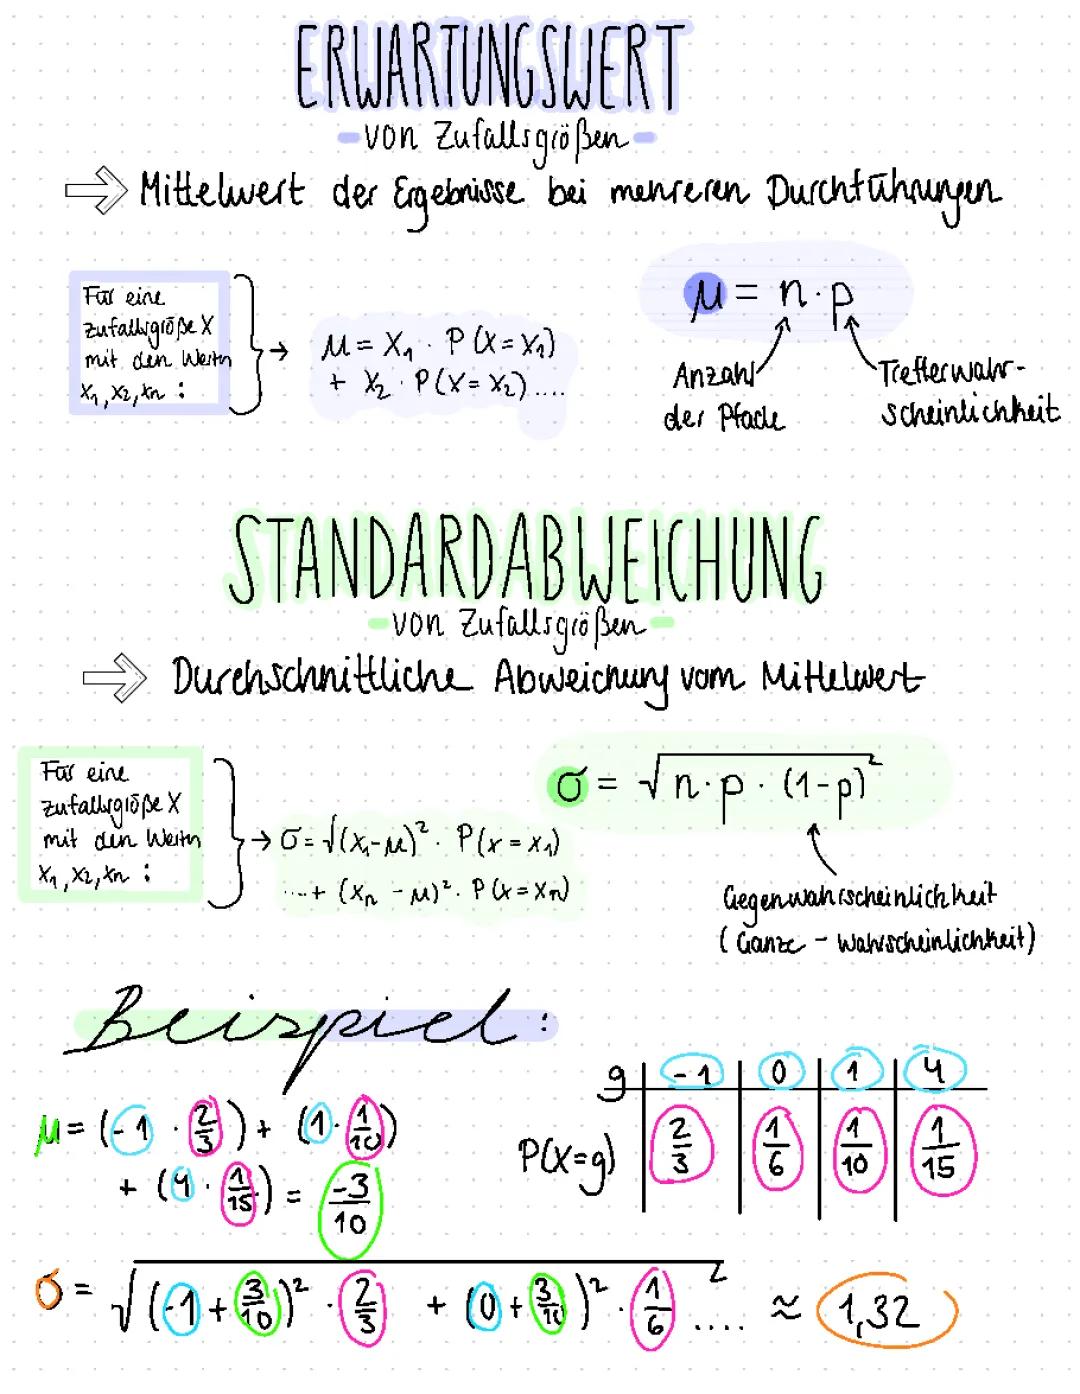 ERWARTUNGSWERT
- von Zufallsgrößen -
⇒ Mittelwert der Ergebnisse bei mehreren Durchführungen
Für eine
Zufallsgröße X
mit den Werten
x₁, x₂, xn :
→ μ = X₁ · P(X = X₁)
+ X₂ · P(X = X₂) ....
μ = n · p
Anzahl
der Pfade
Trefferwahr-
scheinlichkeit
STANDARDABWEICHUNG
- von Zufallsgrößen -
⇒ Durchschnittliche Abweichung vom Mittelwert
Für eine
Zufallsgröße X
mit den Werten
x₁, x₂, xn :
→ σ = √(x₁-μ)² · P(x = x₁)
....+ (xn - μ)² · P(x = xn)
σ = √n · p · (1-p) ²
Gegenwahrscheinlichkeit
(Ganze - Wahrscheinlichkeit)
Beispiel:
g | -1 | 0 | 1 | 4
P(X=g) | 2/3 | 1/6 | 1/10 | 1/15
μ = (-1 · 2/3) + (1 · 1/10)
+ (4 · 1/15) = -3/10
σ = √(-1 + 3/10)² · 2/3 + (0 + 3/10)² · 1/6 .... ² ≈ 1,32